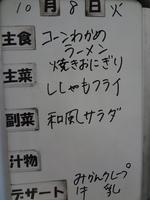 10月8日火
主食 コーンわかめ
ラーメン
焼きおにぎり
主菜 ししゃもフライ
副菜 和風サラダ
汁物
デザート みかんクレープ
牛乳